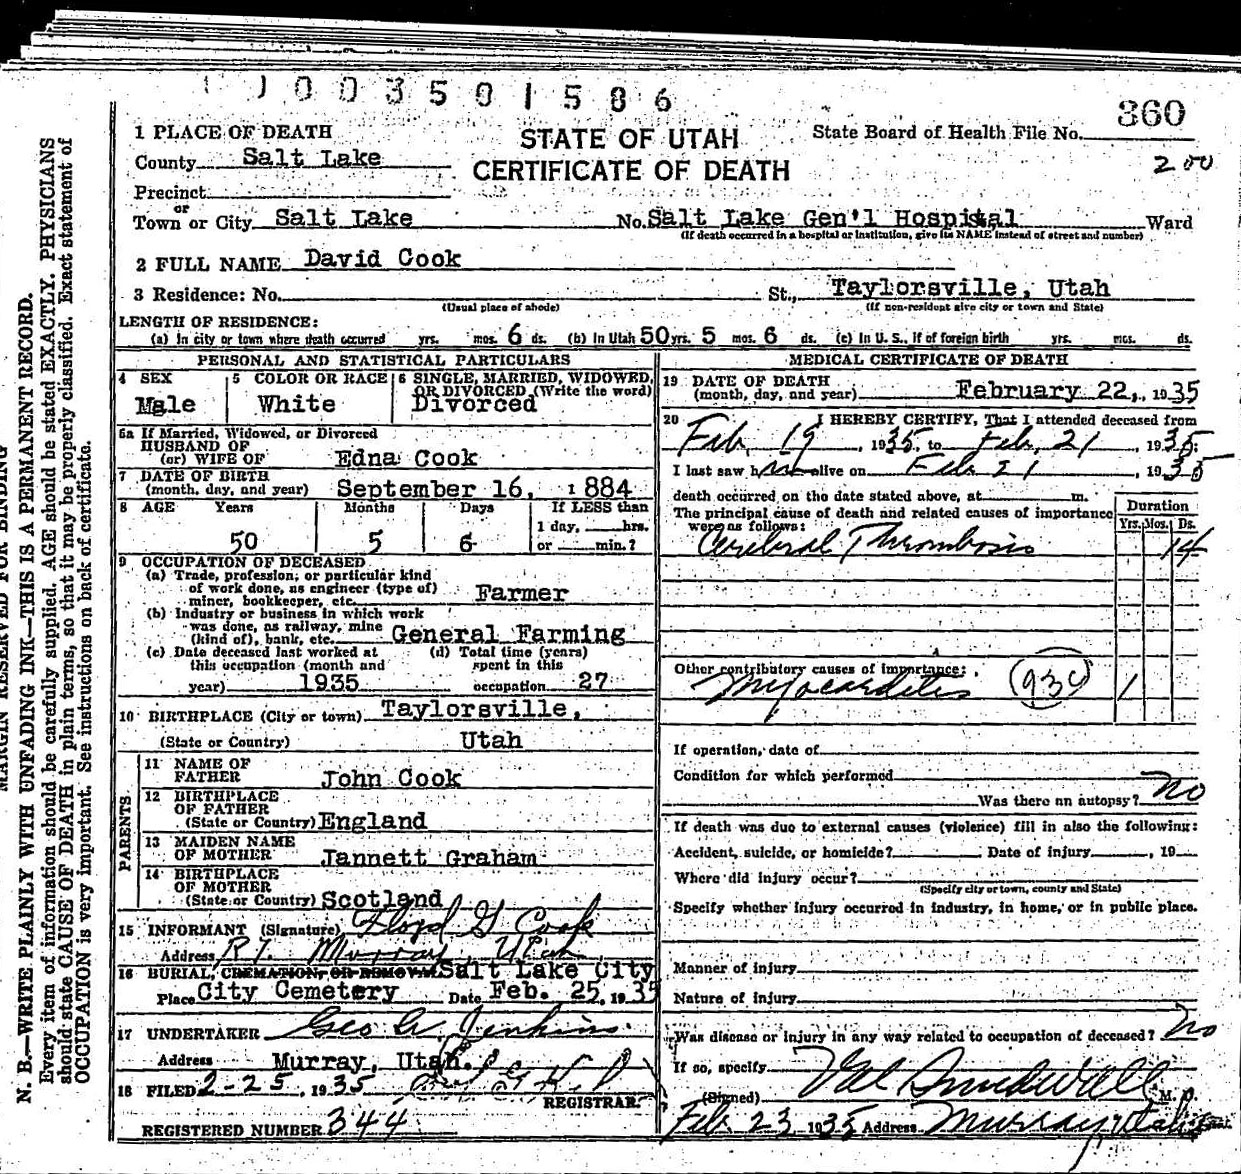 1003501586
STATE OF UTAH
CERTIFICATE OF DEATH
State Board of Health File No. 360
2 00
1 PLACE OF DEATH
County Salt Lake
Precinct
or
Town or City Salt Lake No. Salt Lake Gen'l Hospital Ward
(If death occurred in a hospital or institution, give its NAME instead of street and number)
2 FULL NAME David Cook
3 Residence: No. St., Taylorsville, Utah
(Usual place of abode) (If non-resident give city or town and State)
LENGTH OF RESIDENCE:
(a) In city or town where death occurred yrs. mos. 6 ds. (b) In Utah 50 yrs. 5 mos. 6 ds. (c) In U. S., if of foreign birth yrs. mos. ds.
PERSONAL AND STATISTICAL PARTICULARS
4 SEX Male
5 COLOR OR RACE White
6 SINGLE, MARRIED, WIDOWED, OR DIVORCED (Write the word) Divorced
5a If Married, Widowed, or Divorced
HUSBAND OF
(or) WIFE OF Edna Cook
7 DATE OF BIRTH
(month, day, and year) September 16, 1884
8 AGE Years Months Days If LESS than
50 5 6 1 day, hrs.
or min.?
9 OCCUPATION OF DECEASED
(a) Trade, profession, or particular kind
of work done, as engineer (type of)
miner, bookkeeper, etc. Farmer
(b) Industry or business in which work
was done, as railway, mine
(kind of), bank, etc. General Farming
(c) Date deceased last worked at (d) Total time (years)
this occupation (month and spent in this
year) 1935 occupation 27
10 BIRTHPLACE (City or town) Taylorsville,
(State or Country) Utah
PARENTS
11 NAME OF
FATHER John Cook
12 BIRTHPLACE
OF FATHER
(State or Country) England
13 MAIDEN NAME
OF MOTHER Jannett Graham
14 BIRTHPLACE
OF MOTHER
(State or Country) Scotland
15 INFORMANT (Signature) Floyd G Cook
Address R7. Murray, Utah
16 BURIAL, CREMATION, OR REMOVAL Salt Lake City
Place City Cemetery Date Feb. 25, 1935
17 UNDERTAKER Geo A. Jenkins
Address Murray, Utah.
18 FILED 2-25, 1935
REGISTRAR
REGISTERED NUMBER 344
MEDICAL CERTIFICATE OF DEATH
19 DATE OF DEATH
(month, day, and year) February 22, 1935
20 I HEREBY CERTIFY, That I attended deceased from
Feb. 19, 1935, to Feb, 21, 1935;
I last saw him alive on Feb 21, 1935
death occurred on the date stated above, at m.
The principal cause of death and related causes of importance
were as follows:
Duration
Yrs. Mos. Ds.
Cerebral Thrombosis 14
Other contributory causes of importance:
Myocarditis 93c 1
If operation, date of
Condition for which performed
Was there an autopsy? No
If death was due to external causes (violence) fill in also the following:
Accident, suicide, or homicide? Date of injury , 19
Where did injury occur?
(Specify city or town, county and State)
Specify whether injury occurred in industry, in home, or in public place.
Manner of injury
Nature of injury
Was disease or injury in any way related to occupation of deceased? No
If so, specify
(Signed) Val Sundwall M. D.
Feb. 23 1935 Address Murray, Utah
MARGIN RESERVED FOR BINDING
N. B.—WRITE PLAINLY WITH UNFADING INK—THIS IS A PERMANENT RECORD.
Every item of information should be carefully supplied. AGE should be stated EXACTLY. PHYSICIANS
should state CAUSE OF DEATH in plain terms, so that it may be properly classified. Exact statement of
OCCUPATION is very important. See instructions on back of certificate.